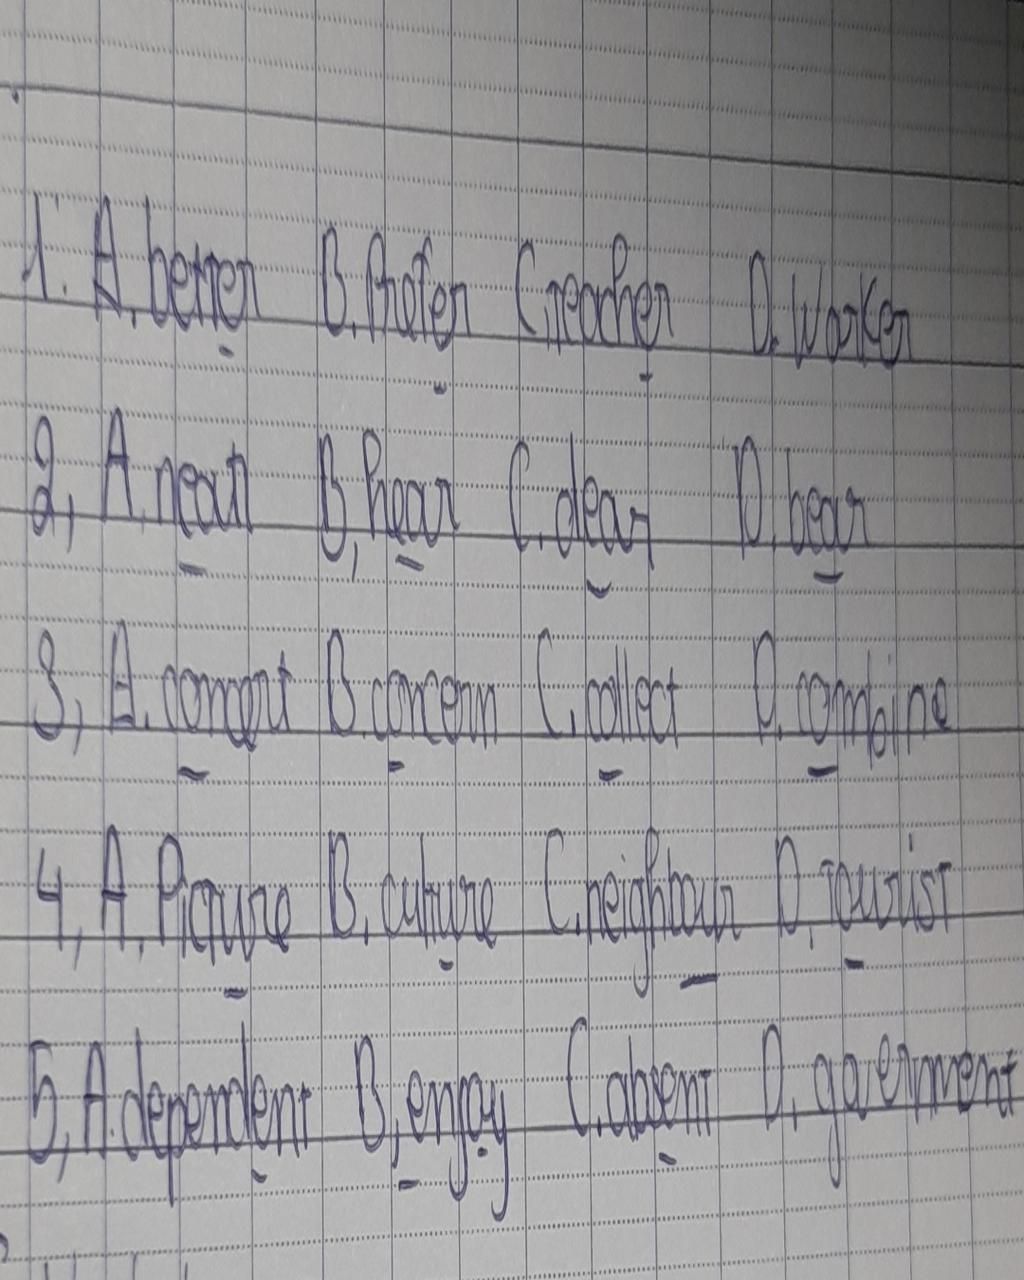 1. A. better B. Prefer C. teacher D. Worker
2, A. near B, hear C. clear D. bear
3, A. concert B. concern C. collect D. combine
4, A. Picture B. culture C. neighbour D. tourist
5, A. dependent B, enjoy C. absent D. government